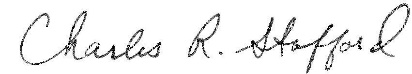 Charles R. Stafford